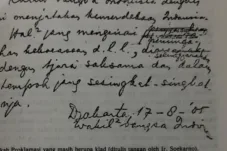 Kami bangsa Indonesia dengan
ini menjatakan kemerdekaan Indonesia.
Hal² jang mengenai
kekoeasaan d.l.l., diselenggarakan
dengan tjara saksama dan dalam
tempoh jang sesingkat-singkat-
nja.
Djakarta, 17-8-'05
Wakil² bangsa Indonesia
Proklamasi yang masih berupa klad (ditulis tangan oleh Ir. Soekarno).